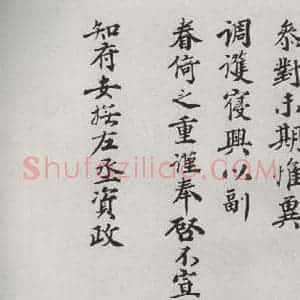 叅對未期惟冀
调護寝興以副
眷倚之重謹奉啓不宣
知府安撫左丞資政
Shufaziliao.COM